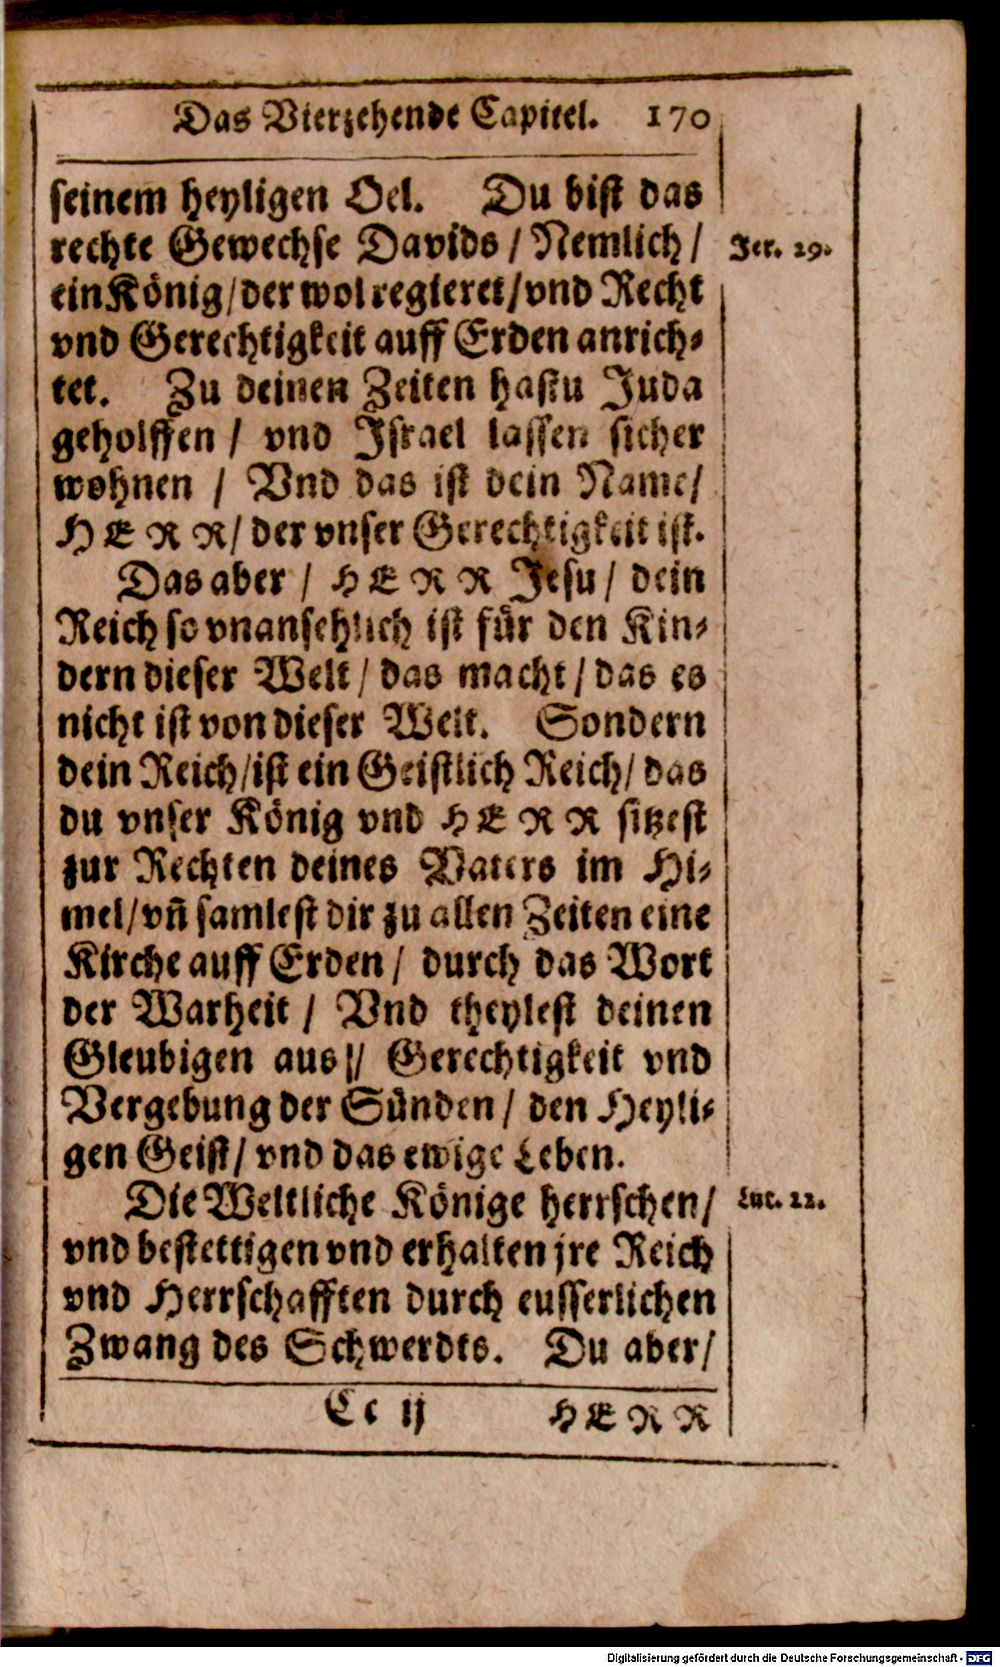 Das Vierzehende Capitel. 170
seinem heyligen Oel. Du bist das
rechte Gewechse Davids / Nemlich /
Jer. 29.
ein König / der wol regieret / vnd Recht
vnd Gerechtigkeit auff Erden anrich-
tet. Zu deinen Zeiten hastu Juda
geholffen / vnd Israel lassen sicher
wohnen / Vnd das ist dein Name /
HERR / der vnser Gerechtigkeit ist.
Das aber / HERR Jesu / dein
Reich so vnansehlich ist für den Kin-
dern dieser Welt / das macht / das es
nicht ist von dieser Welt. Sondern
dein Reich / ist ein Geistlich Reich / das
du vnser König vnd HERR sitzest
zur Rechten deines Vaters im Hi-
mel / vñ samlest dir zu allen Zeiten eine
Kirche auff Erden / durch das Wort
der Warheit / Vnd theylest deinen
Gleubigen aus // Gerechtigkeit vnd
Vergebung der Sünden / den Heyli-
gen Geist / vnd das ewige Leben.
Die Weltliche Könige herrschen /
Luc. 22.
vnd bestettigen vnd erhalten jre Reich
vnd Herrschafften durch eusserlichen
Zwang des Schwerdts. Du aber /
Cc ij HERR
Digitalisierung gefördert durch die Deutsche Forschungsgemeinschaft - DFG